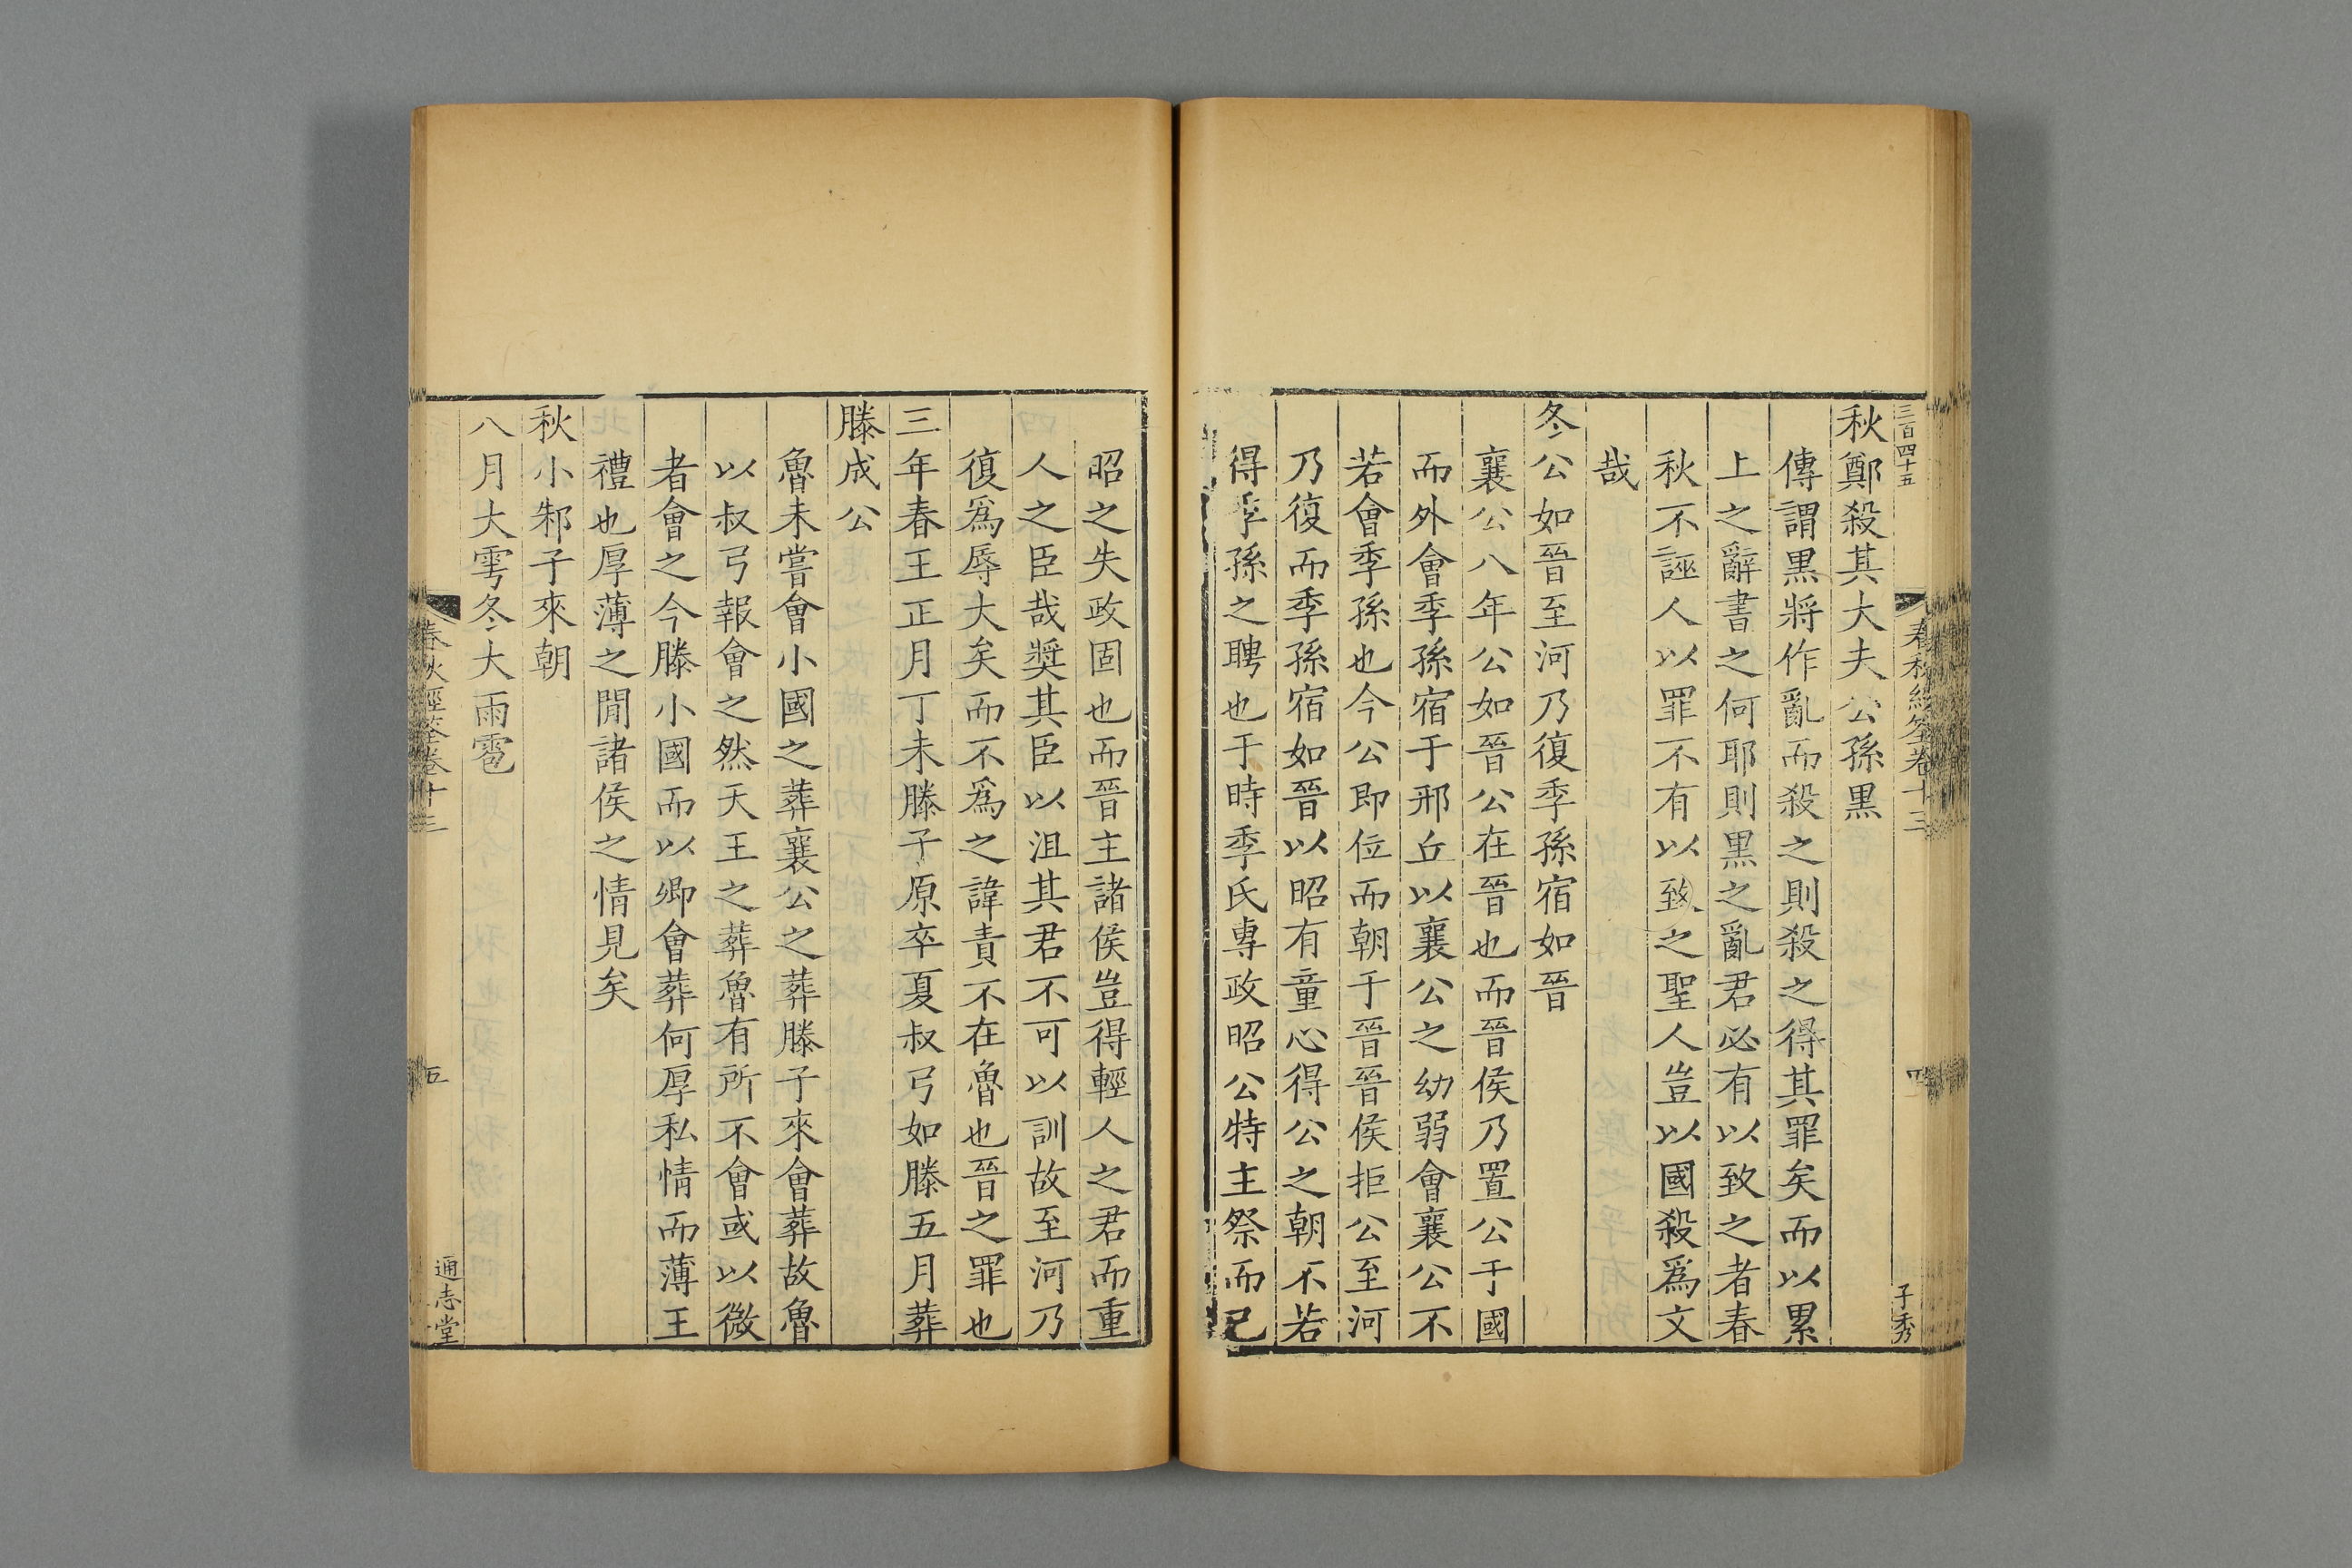 三百四十五
春秋經筌卷十三
四
子秀
秋鄭殺其大夫公孫黑
傳謂黑將作亂而殺之則殺之得其罪矣而以累
上之辭書之何耶則黑之亂君必有以致之者春
秋不誣人以罪不有以致之聖人豈以國殺爲文
哉
冬公如晉至河乃復季孫宿如晉
襄公八年公如晉公在晉也而晉侯乃置公于國
而外會季孫宿于邢丘以襄公之幼弱會襄公不
若會季孫也今公即位而朝于晉晉侯拒公至河
乃復而季孫宿如晉以昭有童心得公之朝不若
得季孫之聘也于時季氏專政昭公特主祭而已
昭之失政固也而晉主諸侯豈得輕人之君而重
人之臣哉奬其臣以沮其君不可以訓故至河乃
復爲辱大矣而不爲之諱責不在魯也晉之罪也
三年春王正月丁未滕子原卒夏叔弓如滕五月葬
滕成公
魯未嘗會小國之葬襄公之葬滕子來會葬故魯
以叔弓報會之然天王之葬魯有所不會或以微
者會之今滕小國而以卿會葬何厚私情而薄王
禮也厚薄之閒諸侯之情見矣
秋小邾子來朝
八月大雩冬大雨雹
春秋經筌卷十三
五
通志堂